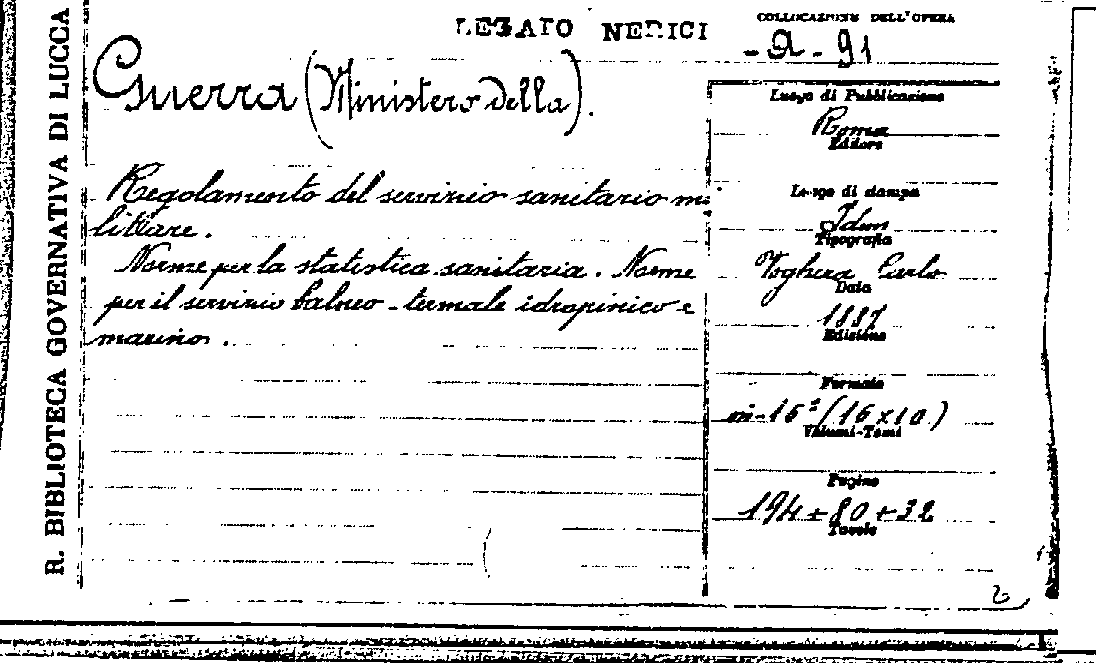 R. BIBLIOTECA GOVERNATIVA DI LUCCA
LEGATO NERICI
COLLOCAZIONE DELL'OPERA
- A - 91
Guerra (Ministero della).
Regolamento del servizio sanitario mi
litare.
Norme per la statistica sanitaria. Norme
per il servizio balneo-termale idropinico e
marino.
Luogo di Pubblicazione
Roma
Editore
Luogo di stampa
Idem
Tipografia
Voghera Carlo
Data
1887
Edizione
Formato
in-16º (16x10)
Volumi-Tomi
Pagine
194+80+32
Tavole